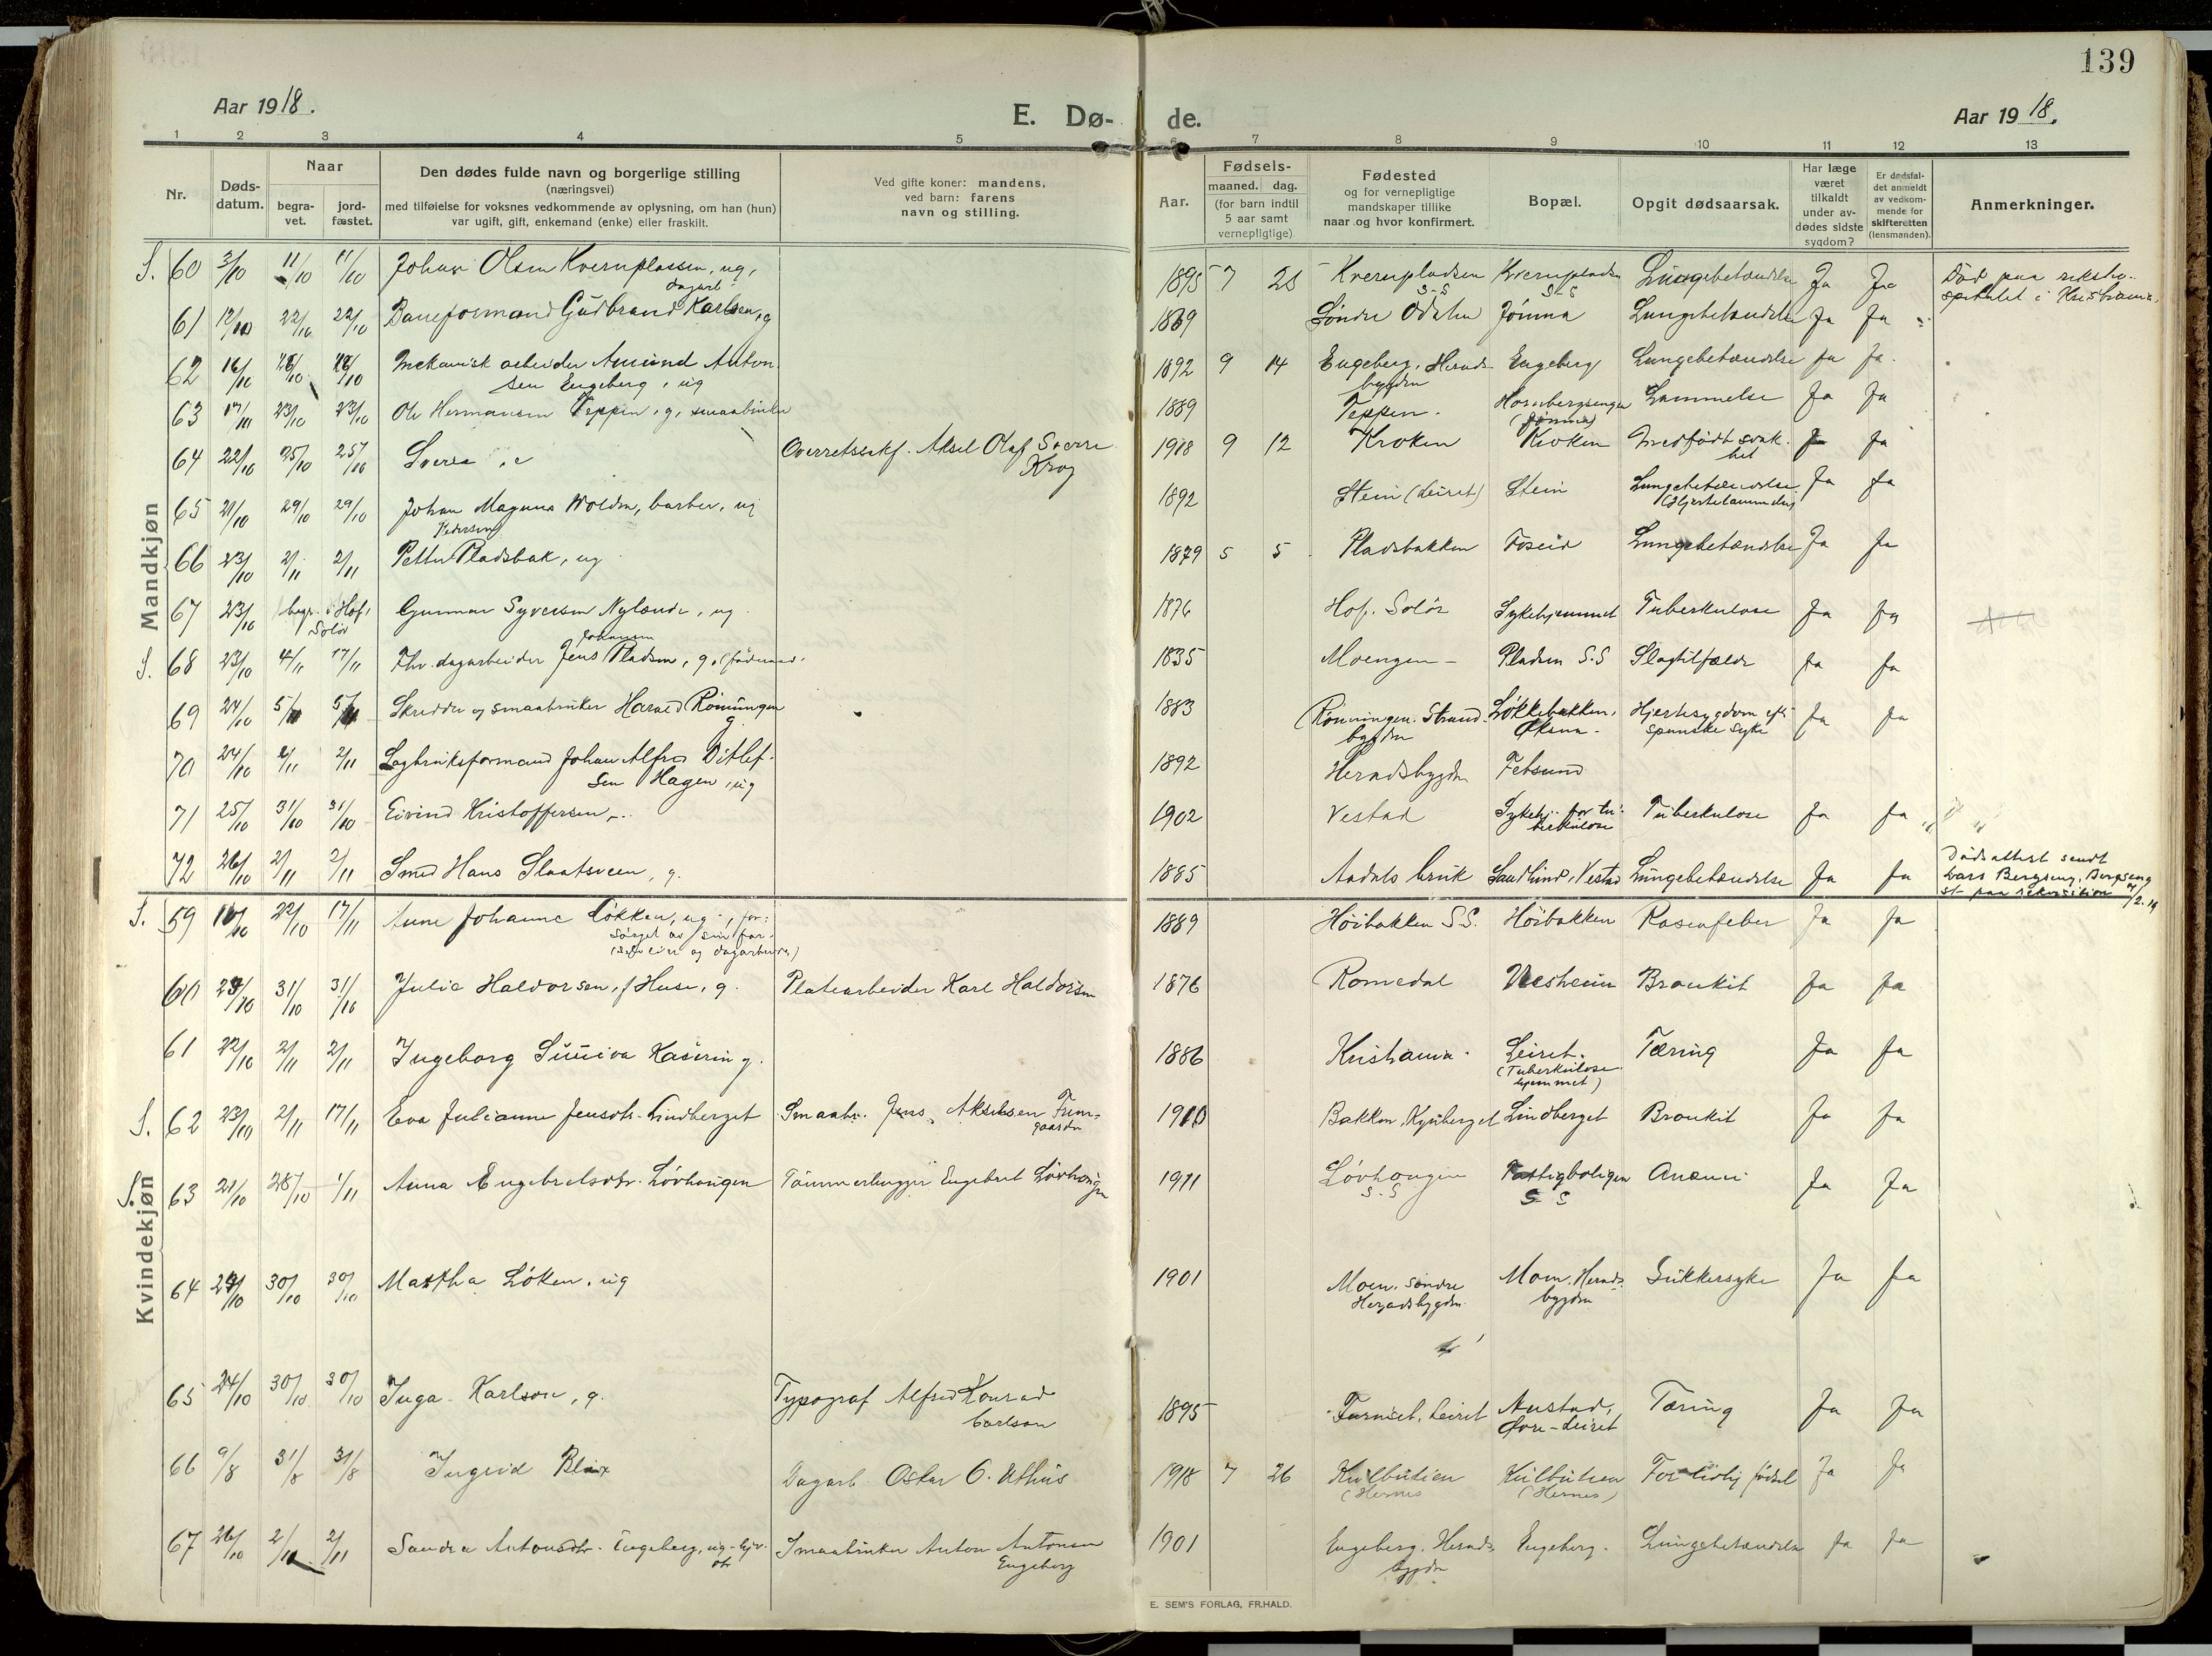 139
Aar 1918.
E. Dø-
de.
Aar 1918.
1 2 3 4 5 6 7 8 9 10 11 12 13
Nr.
Døds-
datum.
Naar
begra-
vet.
jord-
fæstet.
Den dødes fulde navn og borgerlige stilling
(næringsvei)
med tilføielse for voksnes vedkommende av oplysning, om han (hun)
var ugift, gift, enkemand (enke) eller fraskilt.
Ved gifte koner: mandens,
ved barn: farens
navn og stilling.
Aar.
Fødsels-
maaned. dag.
(for barn indtil
5 aar samt
vernepligtige)
Fødested
og for vernepligtige
mandskaper tillike
naar og hvor konfirmert.
Bopæl.
Opgit dødsaarsak.
Har læge
været
tilkaldt
under av-
dødes sidste
sygdom?
Er dødsfal-
det anmeldt
av vedkom-
mende for
skifteretten
(lensmanden).
Anmerkninger.
Mandkjøn
S. 60 3/10 11/10 11/10 Johan Olsen Kvernplassen, ug, 1895 7 25 Kvernpladsen Lungebetændelse Ja Ja Død paa riksho-
dagarb S-S S-S spitalet i Kristiania.
61 12/10 22/10 22/10 Baneformand Gudbrand Karlsen, g 1869 Søndre Odalen Jømna Lungebetændelse Ja Ja
62 16/10 Mekanisk arbeider Amund Anton- 1892 9 14 Engeberg, Herads- Engeberg Lungebetændelse Ja Ja
sen Engeberg, ug bygden
63 17/10 23/10 23/10 Ole Hermansen Teppen, g, smaabruker 1889 Teppen. Lammelse Ja Ja
(Jømna)
64 22/10 25/10 25/10 Sverre Overretssakf. Aksel Olaf Sverre 1918 9 12 Kroken Kroken Medfødt svak- Ja Ja
Krog het
65 21/10 29/10 29/10 Johan Magnus Wolden, barber, ug 1892 Stein (Leiret) Stein Lungebetændelse Ja Ja
Pedersen
66 23/10 2/11 2/11 Petter Pladsbak, ug 1879 5 5 Pladsbakken Foseid Lungebetændelse Ja Ja
67 23/10 begr. i Hof, Gunnar Syversen Nylænde, ug 1876 Hof, Solør Sykehjemmet Tuberkulose Ja Ja
Solør
Johansen
S. 68 23/10 4/11 17/11 Fhv. dagarbeider Jens Pladsen, g. 1835 Moengen Pladsen S.S Slagtilfælde Ja Ja
69 24/10 Skredder og smaabruker Harald Rønningen 1883 Rønningen. Strand- Løkkebakken, Hjertesygdom eft. Ja Ja
g bygden Øksna spanske syke
70 24/10 2/11 2/11 Sagbruksformand Johan Alfred Ditlef- 1892 Heradsbygden Fetsund
sen Hagen, ug
71 25/10 31/10 31/10 Eivind Kristoffersen 1902 Vestad Sykehj. for tu- Tuberkulose Ja Ja
berkulose
72 26/10 2/11 2/11 Smed Hans Slaatsveen, g. 1885 Aadals bruk Sandlund, Vestad Lungebetændelse Ja Ja Dødsattest sendt
Lars Bergseng, Bergseng
st. paa rekvisition
Kvindekjøn
S. 59 22/10 17/11 Anne Johanne Løkken, ug, for- 1889 Høibakken S.S. Høibakken Rosenfeber Ja Ja
sørget av sin far.
60 31/10 31/10 Julie Haldorsen, f Huse, g. Platearbeider Karl Haldorsen 1876 Romedal Vesheim Bronkit Ja Ja
61 22/10 2/11 2/11 Ingeborg Suniva Kaserin g. 1886 Kristiania Leiret. Tæring Ja Ja
(Tuberkulose
hjemmet)
S. 62 23/10 2/11 17/11 Eva Julianne Jensdtr. Lindberget Smaabr. Jens Akselsen Frem- 1910 Bakken, Kynberget Lindberget Bronkit Ja Ja
gaarden
S. 63 21/10 28/10 1/11 Anna Engebretsdtr. Løvhaugen Tømmerhugger Engebret Løvhaugen 1911 Løvhaugen Fattigboligen Anæmi Ja Ja
S.S S S
64 30/10 30/10 Martha Løken, ug 1901 Moen, søndre Moen, Herads- Sukkersyke Ja Ja
Heradsbygden bygden
65 24/10 30/10 30/10 Inga Karlson, g. Typograf Alfred Konrad 1895 Furuset, Leiret Austad, Tæring Ja Ja
Carlson Øvre-Leiret
66 9/8 31/8 31/8 Ingrid Dagarb. Oskar O. Uthus 1918 7 26 Kulbutien Kulbutien For tidlig fødsel Ja Ja
(Hernes (Hernes)
67 26/10 2/11 2/11 Sandra Antonsdtr. Engeberg, ug Smaabruker Anton Antonsen 1901 Engeberg, Herads- Engeberg. Lungebetændelse Ja Ja
Engeberg bygden
E. SEM'S FORLAG, FR.HALD.